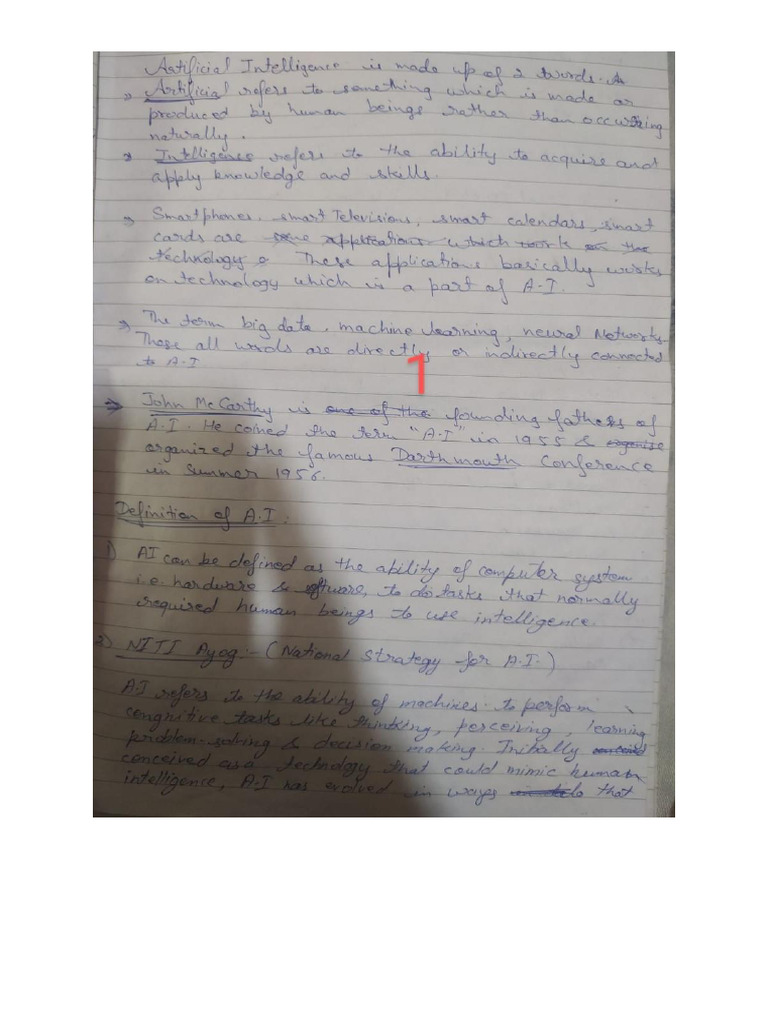 Artificial Intelligence is made up of 2 words. A
» Artificial refers to something which is made or
produced by human beings rather than occurring
naturally.
» Intelligence refers to the ability to acquire and
apply knowledge and skills.
» Smartphones, smart Televisions, smart calendars, smart
cards are some applications which work on the
technology. These applications basically works
on technology which is a part of A.I.
» The term big data, machine learning, neural Networks
These all words are directly or indirectly connected
to A.I
1
» John McCarthy is one of the founding fathers of
A.I. He coined the term "A.I" in 1955 & organise
organized the famous Darthmouth Conference
in Summer 1956.
Definition of A.I :
1) AI can be defined as the ability of computer system
i.e. hardware & software, to do tasks that normally
required human beings to use intelligence.
2) NITI Ayog :- (National Strategy for A.I.)
A.I refers to the ability of machines to perform
congnitive tasks like thinking, perceiving, learning
problem-solving & decision making. Initially
conceived as a technology that could mimic human
intelligence, A.I has evolved in ways that